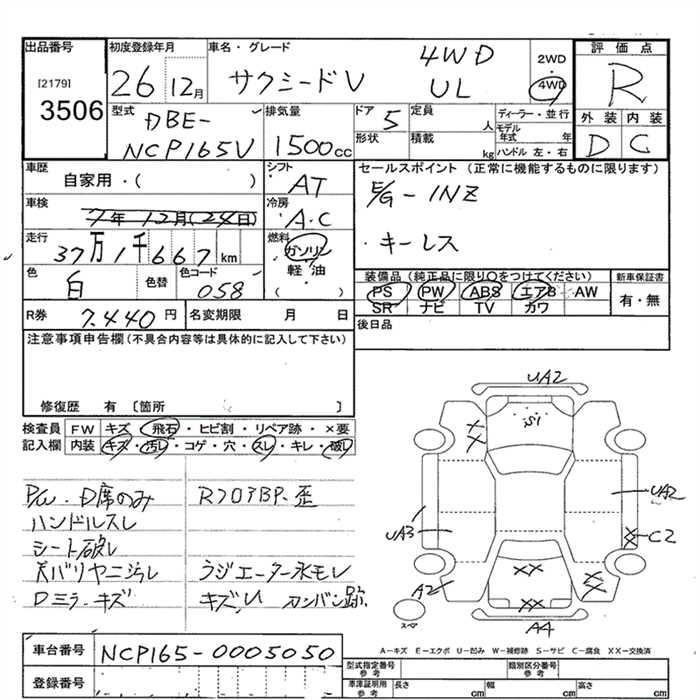 出品番号
[2179]
3506
初度登録年月
26 12月
車名・グレード
サクシードV
4WD
UL
2WD
・
4WD
評価点
R
外装 内装
D C
型式
DBE-
NCP165V
排気量
1500cc
ドア 5
形状
定員 人
積載 kg
ディーラー・並行
モデル年式 年
ハンドル 左・右
車歴
自家用・( )
シフト
AT
セールスポイント (正常に機能するものに限ります)
E/G-1NZ
・キーレス
車検
7年12月(24日)
冷房
A・C
走行
37万1千667km
燃料
ガソリン
軽・油
( )
色
白
色替
色コード
058
装備品(純正品に限り〇をつけてください)
PS PW ABS エアB AW
SR ナビ TV カワ
新車保証書
有・無
R券 7,440円
名変期限 月 日
後日品
注意事項申告欄(不具合内容等は具体的に記入して下さい)
修復歴 有 〔箇所 〕
検査員記入欄
FW キズ・飛石・ヒビ割・リペア跡・×要
内装 キズ・汚レ・コゲ・穴・スレ・キレ・破レ
PW・D席のみ
ハンドルスレ
シート破レ
天バリヤニ汚レ
Dミラーキズ
ラジエーター水モレ
キズU カンバン跡
UA2
S1
UA2
UA3
C2
A2
XX
XX
スペア
A4
A-キズ E-エクボ U-凹み W-補修跡 S-サビ C-腐食 XX-交換済
車台番号
NCP165-0005050
登録番号
型式指定番号
参考
類別区分番号
参考
車庫証明用
参考
長さ cm 幅 cm 高さ cm